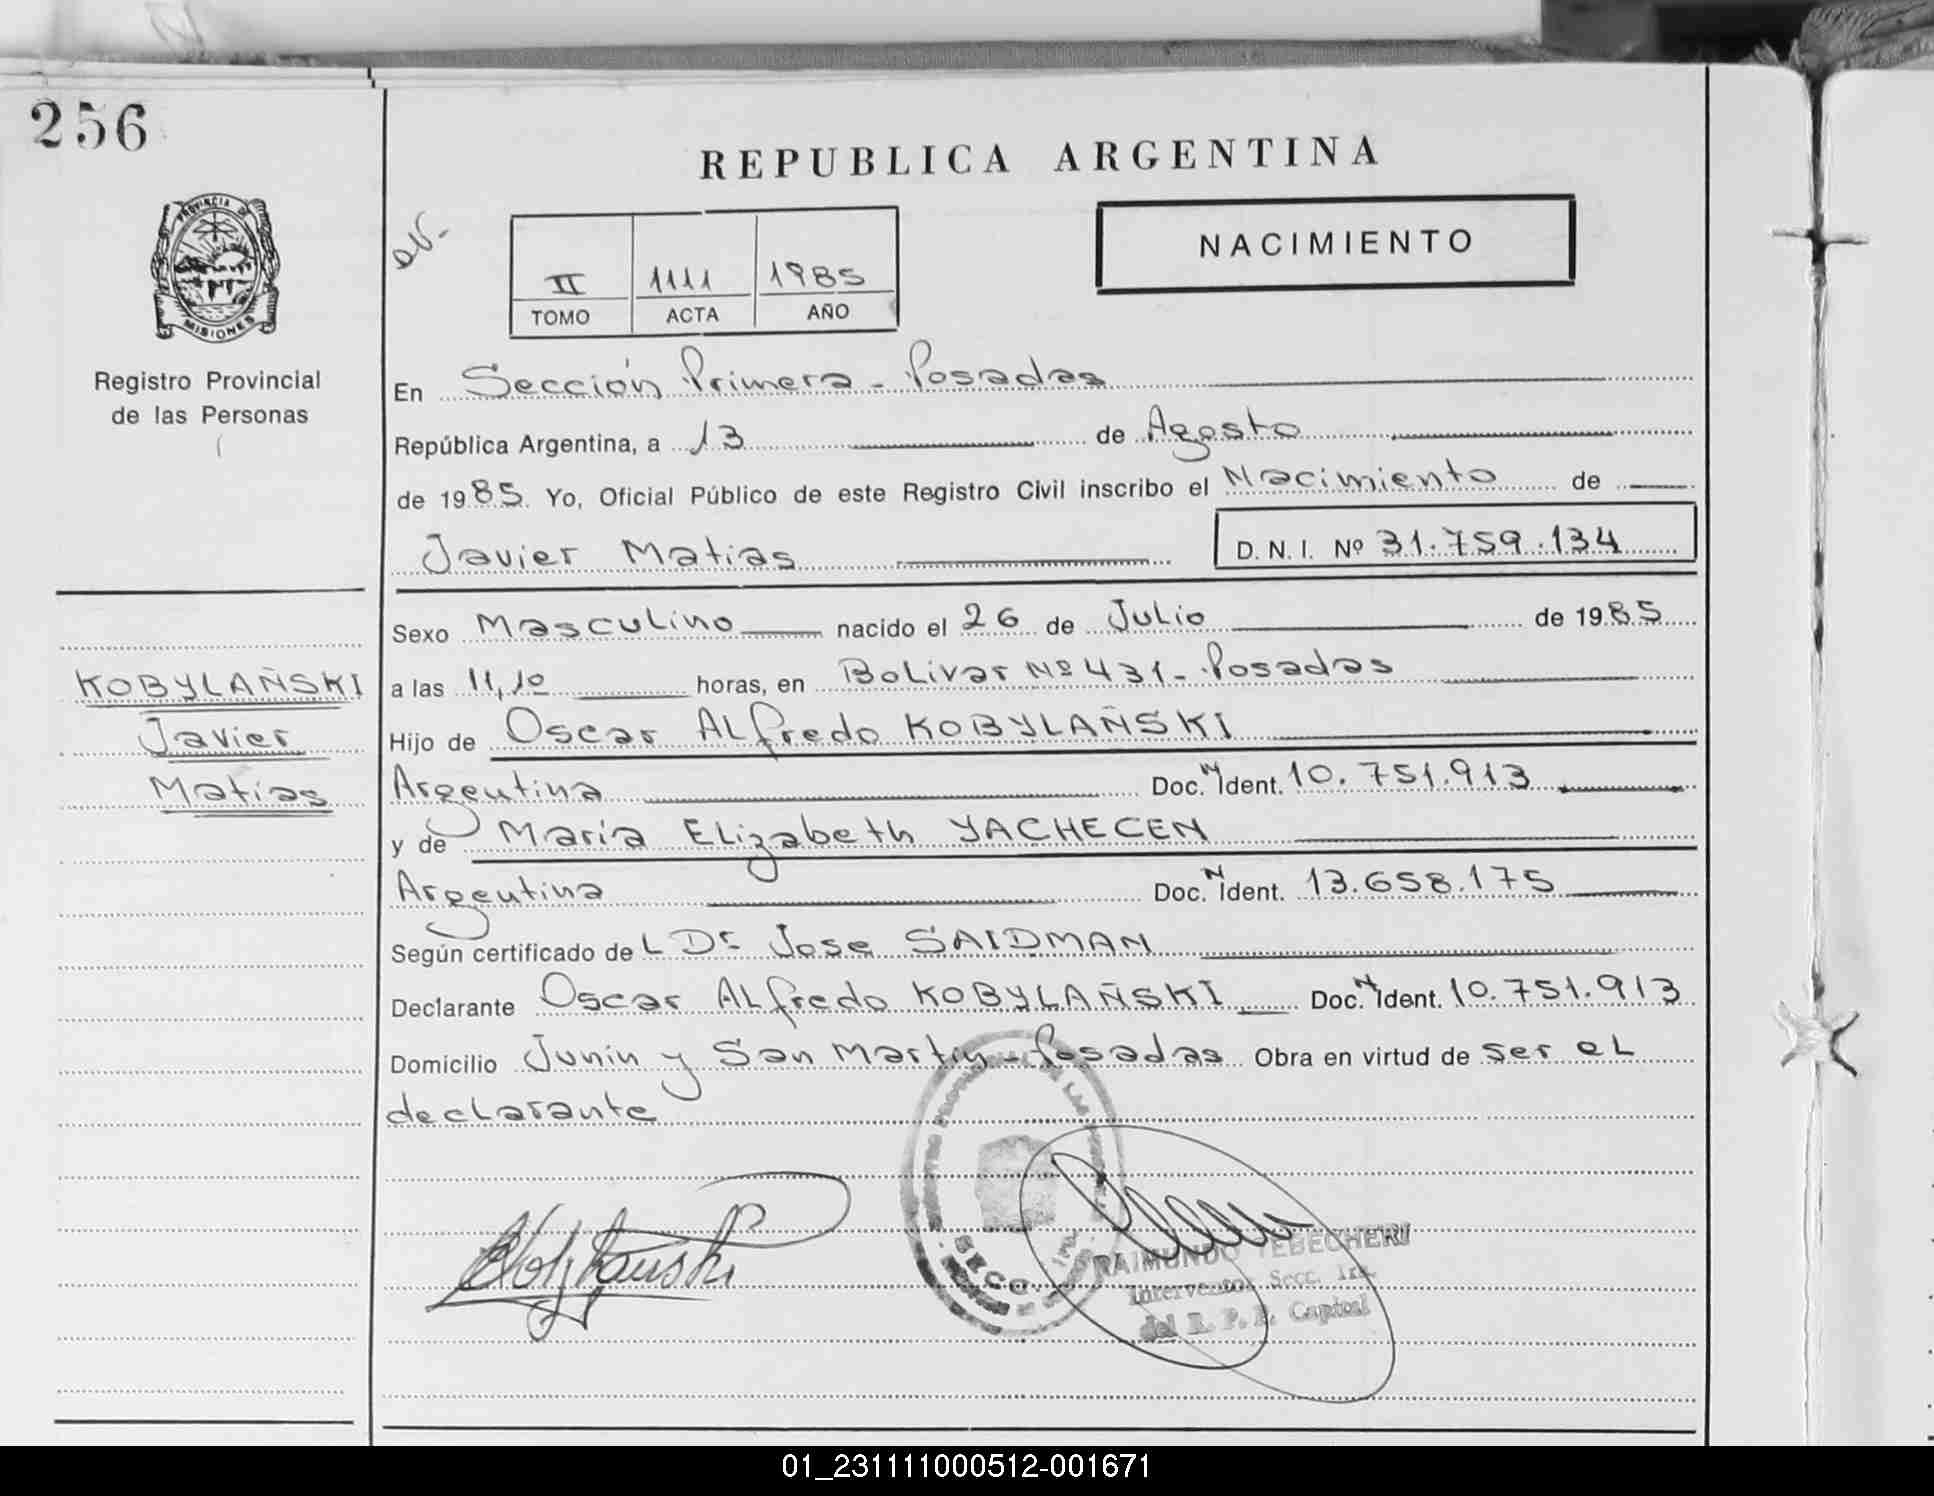 256
REPUBLICA ARGENTINA
PROVINCIA DE
MISIONES
Registro Provincial
de las Personas
II 1111 1985
TOMO ACTA AÑO
NACIMIENTO
En Sección Primera - Posadas
República Argentina, a 13 de Agosto
de 1985. Yo, Oficial Público de este Registro Civil inscribo el Nacimiento de
Javier Matias D. N. I. Nº 31.759.134
Sexo Masculino nacido el 26 de Julio de 1985
a las 11,10 horas, en Bolivar Nº 431 - Posadas
Hijo de Oscar Alfredo KOBYLAÑSKI
Argentina Doc. N Ident. 10.751.913
y de María Elizabeth YACHECEN
Argentina Doc. N Ident. 13.658.175
Según certificado de L Dr Jose SAIDMAN
Declarante Oscar Alfredo KOBYLAÑSKI Doc. N Ident. 10.751.913
Domicilio Junín y San Martín - Posadas Obra en virtud de ser el
declarante
KOBYLAÑSKI
Javier
Matías
RAIMUNDO TEBECHERI
Interventor Secc. 1ra.
del R. P. P. Capital
01_231111000512-001671